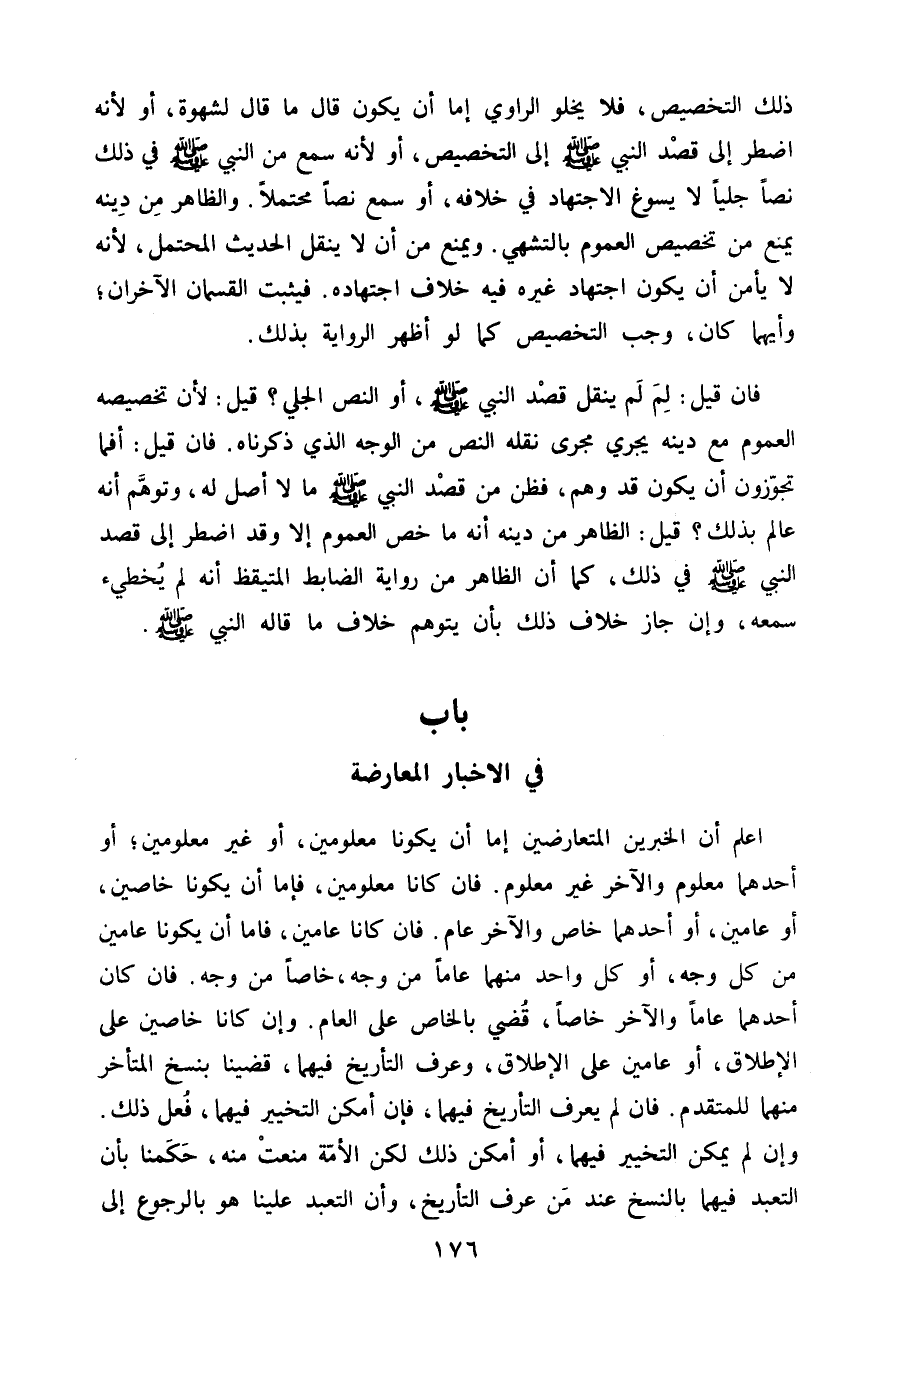 ذلك التخصيص، فلا يخلو الراوي إما أن يكون قال ما قال لشهوة، أو لأنه
اضطر إلى قصْد النبي ﷺ إلى التخصيص، أو لأنه سمع من النبي ﷺ في ذلك
نصاً جلياً لا يسوغ الاجتهاد في خلافه، أو سمع نصاً محتملاً. والظاهر مِن دِينه
يمنع من تخصيص العموم بالتشهي. ويمنع من أن لا ينقل الحديث المحتمل، لأنه
لا يأمن أن يكون اجتهاد غيره فيه خلاف اجتهاده. فيثبت القسمان الآخران؛
وأيهما كان، وجب التخصيص كما لو أظهر الرواية بذلك.
فان قيل: لِمَ لَم ينقل قصْد النبي ﷺ، أو النص الجلي؟ قيل: لأن تخصيصه
العموم مع دينه يجري مجرى نقله النص من الوجه الذي ذكرناه. فان قيل: أفما
تجوّزون أن يكون قد وهم، فظن من قصْد النبي ﷺ ما لا أصل له، وتوهَّم أنه
عالم بذلك؟ قيل: الظاهر من دينه أنه ما خص العموم إلا وقد اضطر إلى قصد
النبي ﷺ في ذلك، كما أن الظاهر من رواية الضابط المتيقظ أنه لم يُخطيء
سمعه، وإن جاز خلاف ذلك بأن يتوهم خلاف ما قاله النبي ﷺ.
باب
في الاخبار المعارضة
اعلم أن الخبرين المتعارضين إما أن يكونا معلومين، أو غير معلومين؛ أو
أحدهما معلوم والآخر غير معلوم. فان كانا معلومين، فإما أن يكونا خاصين،
أو عامين، أو أحدهما خاص والآخر عام. فان كانا عامين، فاما أن يكونا عامين
من كل وجه، أو كل واحد منهما عاماً من وجه،خاصاً من وجه. فان كان
أحدهما عاماً والآخر خاصاً، قُضي بالخاص على العام. وإن كانا خاصين على
الإطلاق، أو عامين على الإطلاق، وعرف التأريخ فيهما، قضينا بنسخ المتأخر
منهما للمتقدم. فان لم يعرف التأريخ فيهما، فإن أمكن التخيير فيهما، فُعل ذلك.
وإن لم يمكن التخيير فيهما، أو أمكن ذلك لكن الأمّة منعتْ منه، حَكَمنا بأن
التعبد فيهما بالنسخ عند مَن عرف التأريخ، وأن التعبد علينا هو بالرجوع إلى
١٧٦